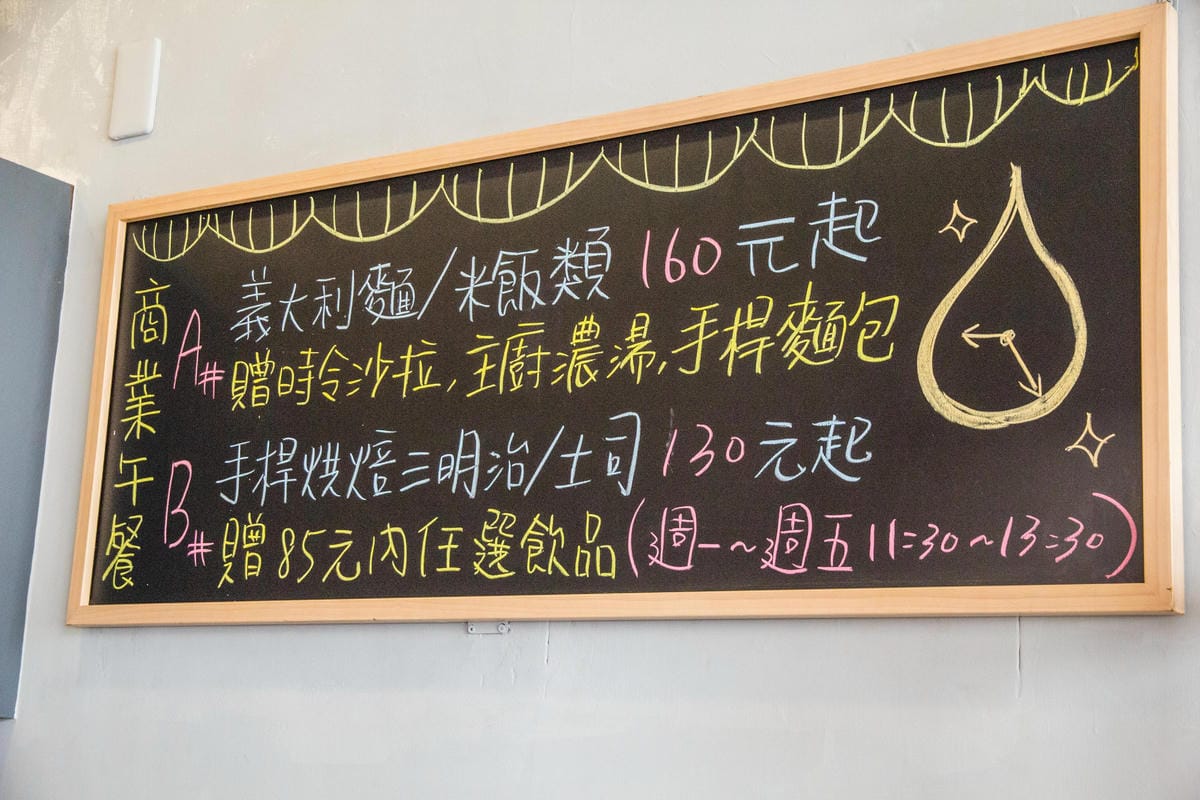 商業午餐
A#
義大利麵/米飯類 160元起
贈時令沙拉,主廚濃湯,手桿麵包
B#
手桿烘焙三明治/土司 130元起
贈85元內任選飲品(週一~週五 11:30~13:30)